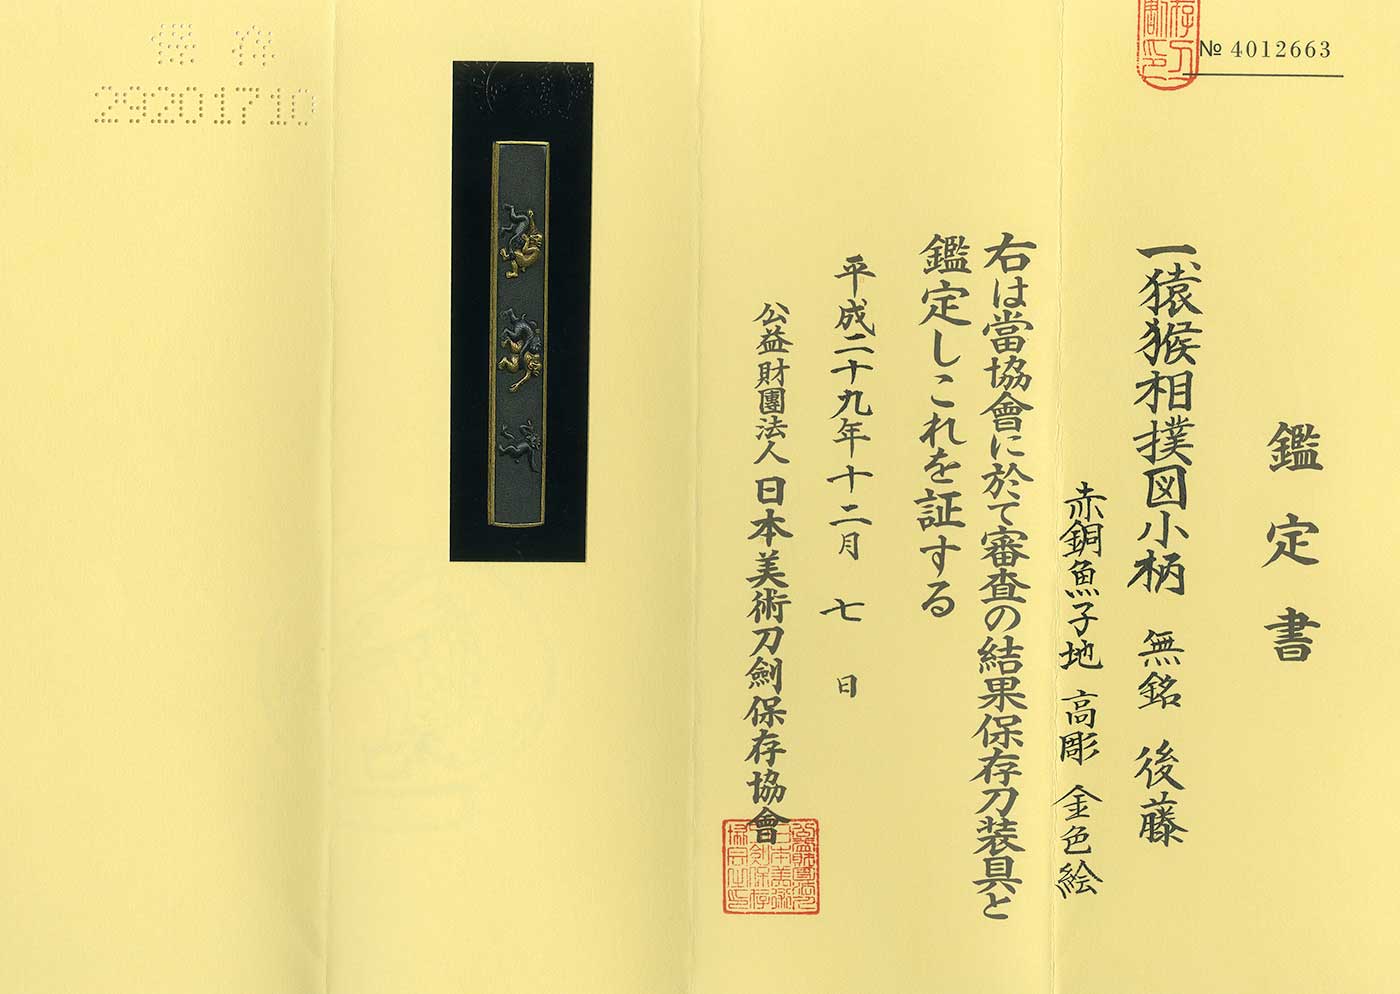 № 4012663
鑑定書
一、猿猴相撲図小柄 無銘 後藤
赤銅魚子地 高彫 金色絵
右は當協會に於て審査の結果保存刀装具と
鑑定しこれを証する
平成二十九年十二月 七 日
公益財團法人日本美術刀劍保存協會
保存
29201710